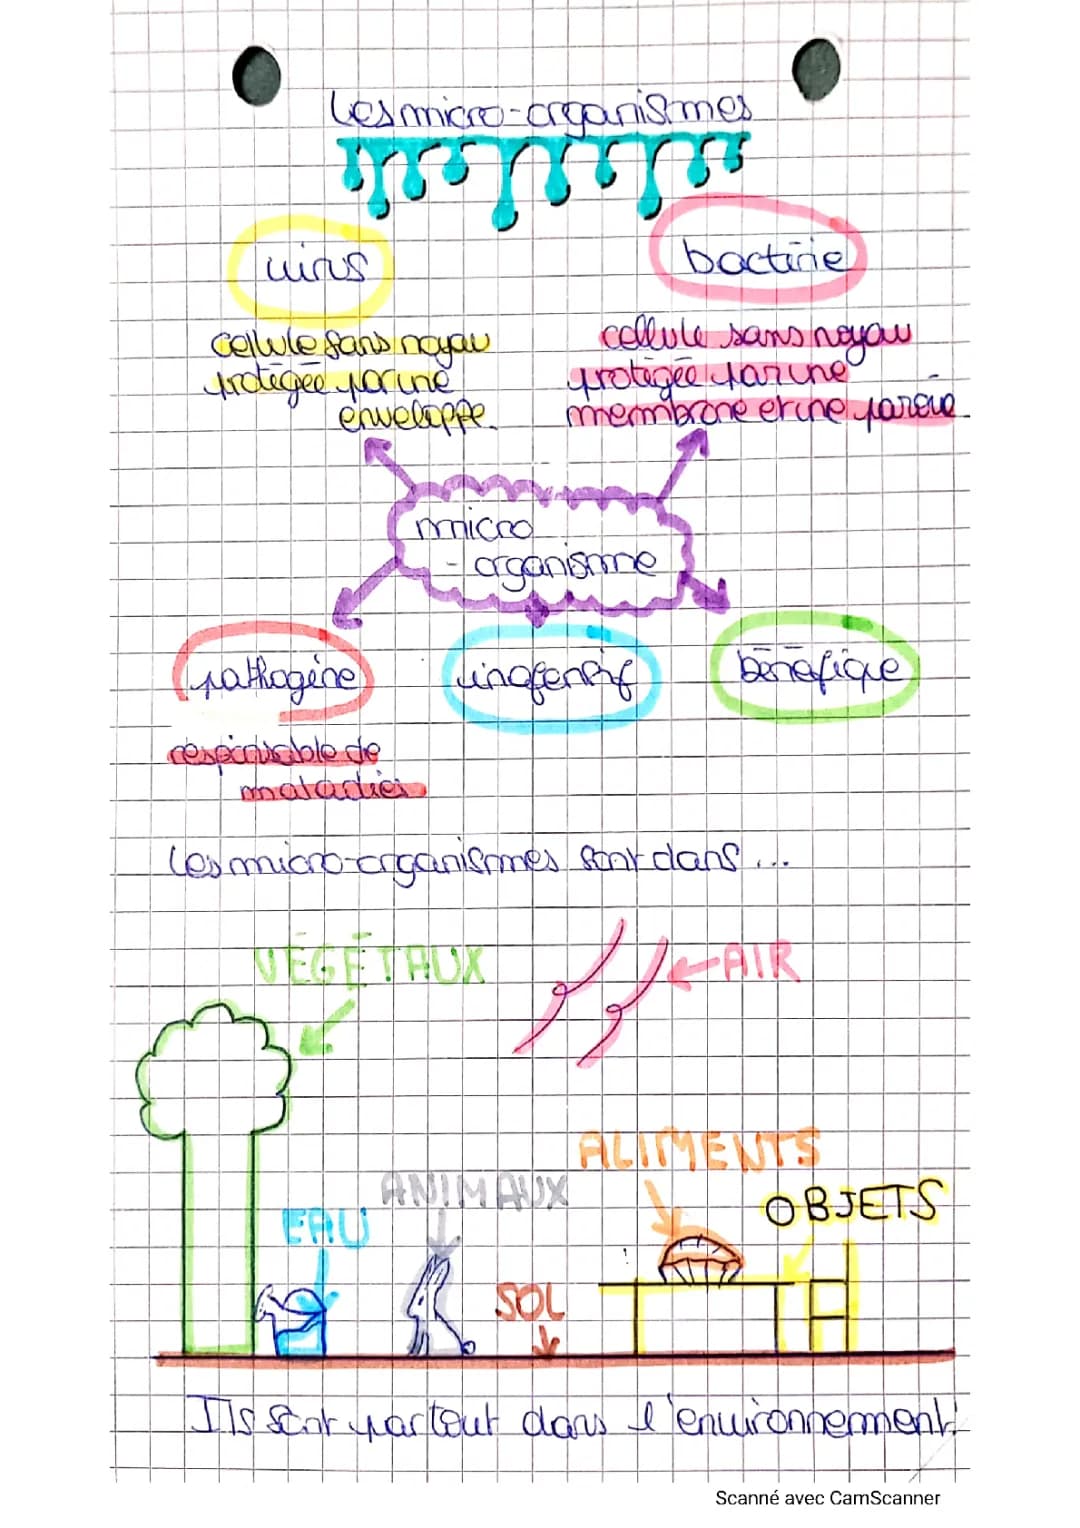 Les micro-organismes
virus
bactérie
cellule sans noyau
protégée par une
enveloppe.
cellule sans noyau
protégée par une
membrane et une paroie
micro
- organisme
pathogène
inofensif
bénéfique
responsable de
maladies
Les micro-organismes sont dans ...
VÉGÉTAUX
AIR
ALIMENTS
ANIMAUX
OBJETS
EAU
SOL
Ils sont partout dans l'environnement.
Scanné avec CamScanner